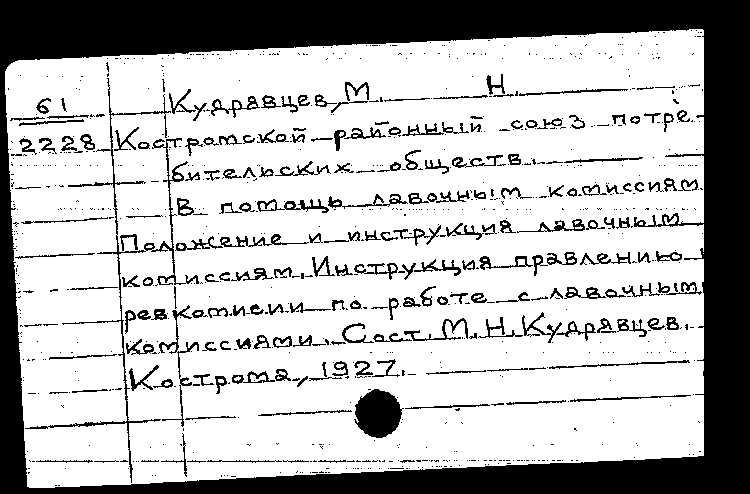 61 Кудрявцев, М. Н.
2228 Костромской районный союз потре-
бительских обществ.
В помощь лавочным комиссиям
Положение и инструкция лавочным
комиссиям. Инструкция правлению и
ревкомисии по работе с лавочными
комиссиями. Сост. М. Н. Кудрявцев.
Кострома, 1927.